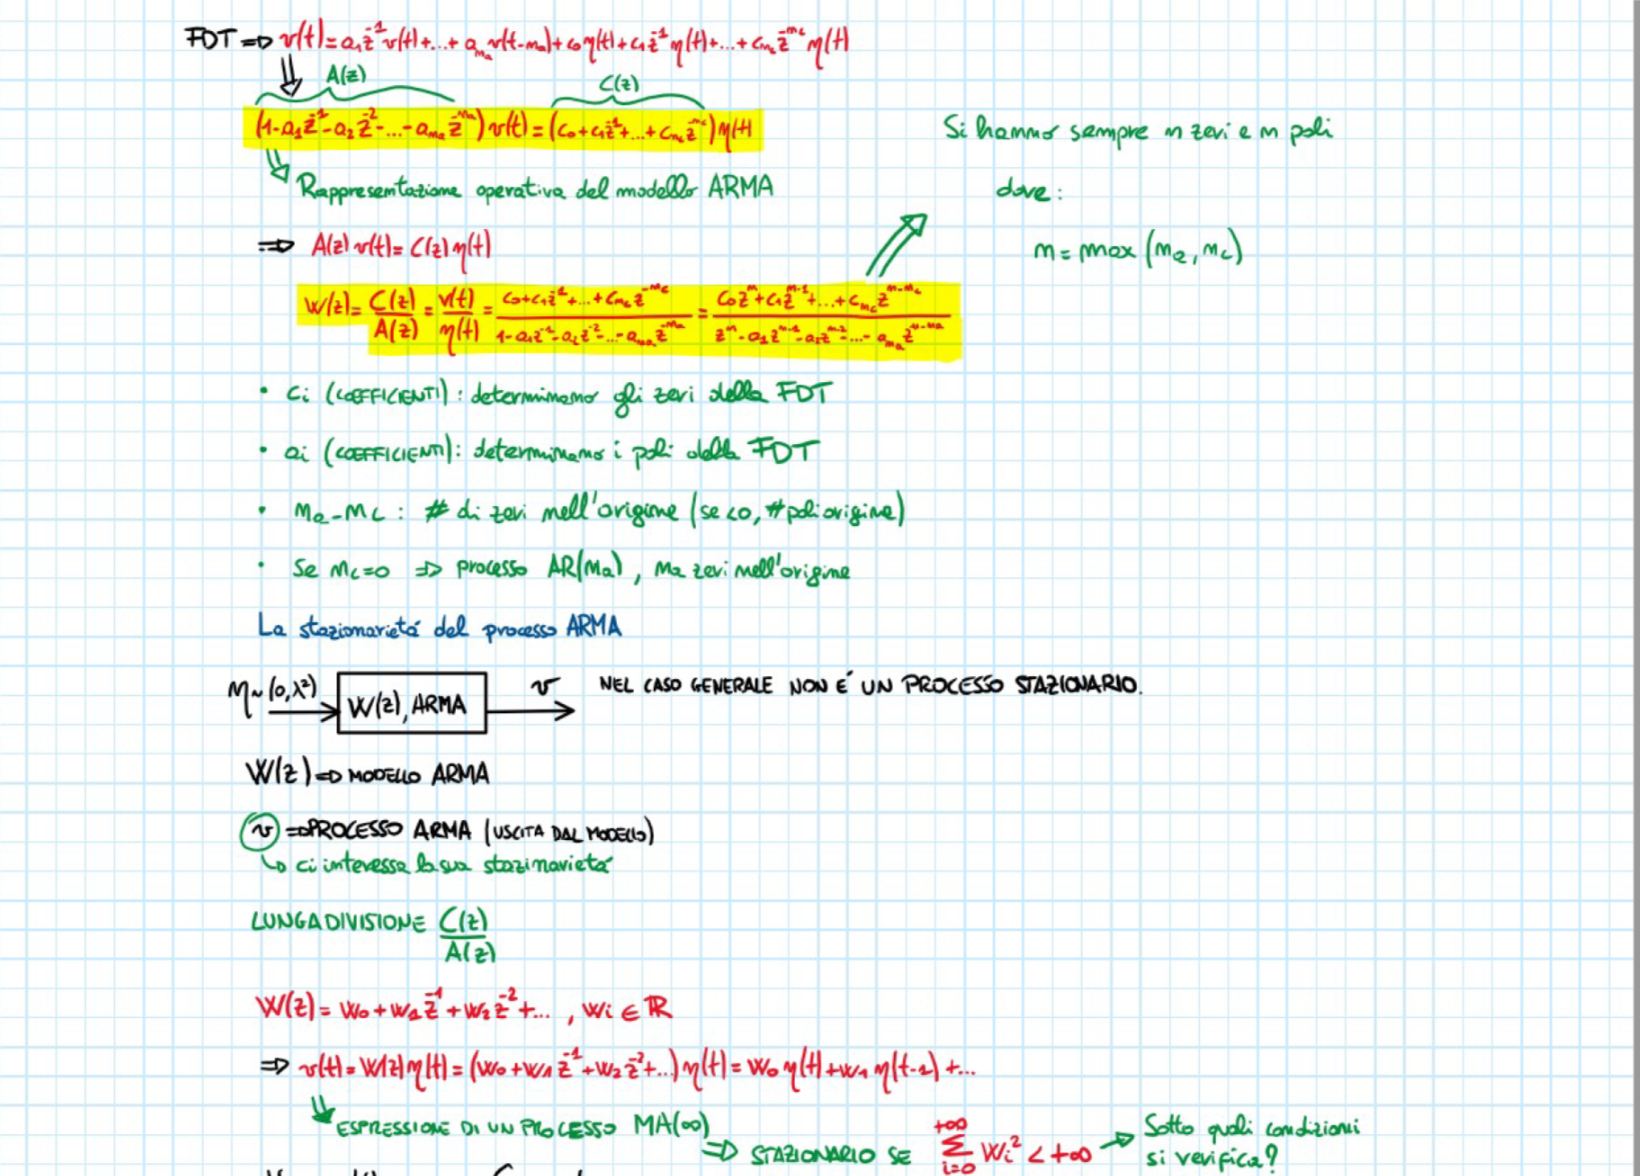 FDT ⇒ v(t)=a₁z⁻¹v(t)+...+a_{ma}v(t-ma)+c₀η(t)+c₁z⁻¹η(t)+...+c_{mc}z^{-mc}η(t)
A(z) C(z)
(1-a₁z⁻¹-a₂z⁻²-...-a_{ma}z^{-ma})v(t)=(c₀+c₁z⁻¹+...+c_{mc}z^{-mc})η(t)
Si hanno sempre n zeri e n poli
Rappresentazione operativa del modello ARMA
dove:
⇒ A(z)v(t)=C(z)η(t)
n=max(ma,mc)
W(z)=C(z)/A(z)=v(t)/η(t)=(c₀+c₁z⁻¹+...+c_{mc}z^{-mc})/(1-a₁z⁻¹-a₂z⁻²-...-a_{ma}z^{-ma})=(c₀zⁿ+c₁z^{n-1}+...+c_{mc}z^{n-mc})/(zⁿ-a₁z^{n-1}-a₂z^{n-2}-...-a_{ma}z^{n-ma})
• ci (COEFFICIENTI): determinano gli zeri della FDT
• ai (COEFFICIENTI): determinano i poli della FDT
• ma-mc: # di zeri nell'origine (se <0, #poli origine)
• Se mc=0 ⇒ processo AR(ma), ma zeri nell'origine
La stazionarietá del processo ARMA
η~(0,λ²) W(z), ARMA v NEL CASO GENERALE NON É UN PROCESSO STAZIONARIO.
W(z) ⇒ MODELLO ARMA
v ⇒ PROCESSO ARMA (USCITA DAL MODELLO)
↳ ci interessa la sua stazinarietá
LUNGA DIVISIONE C(z)/A(z)
W(z)=w₀+w₁z⁻¹+w₂z⁻²+... , wi∈ℝ
⇒ v(t)=W(z)η(t)=(w₀+w₁z⁻¹+w₂z⁻²+...)η(t)=w₀η(t)+w₁η(t-1)+...
ESPRESSIONE DI UN PROCESSO MA(∞) ⇒ STAZIONARIO SE Σ_{i=0}^{+∞} wi²<+∞ → Sotto quali condizioni
si verifica?